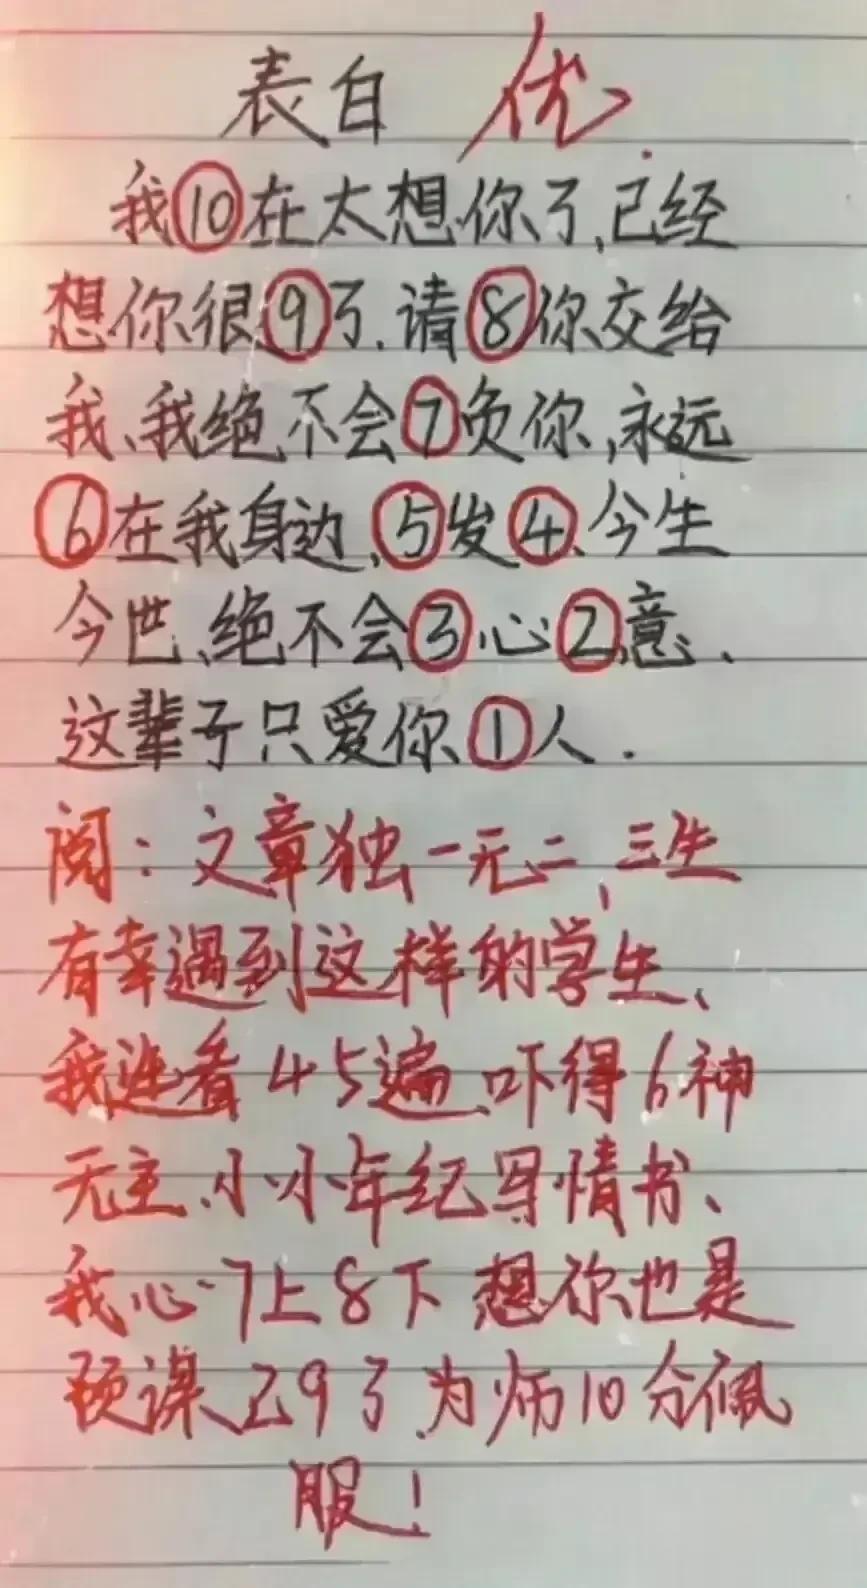 表白 优
我⑩在太想你了,已经
想你很⑨了.请⑧你交给
我、我绝不会⑦负你,永远
⑥在我身边、⑤发④、今生
今世、绝不会③心②意、
这辈子只爱你①人.
阅:文章独一无二、三生
有幸遇到这样的学生、
我连看45遍、吓得6神
无主、小小年纪写情书、
我心7上8下 想你也是
预谋已9了、为师10分佩
服!